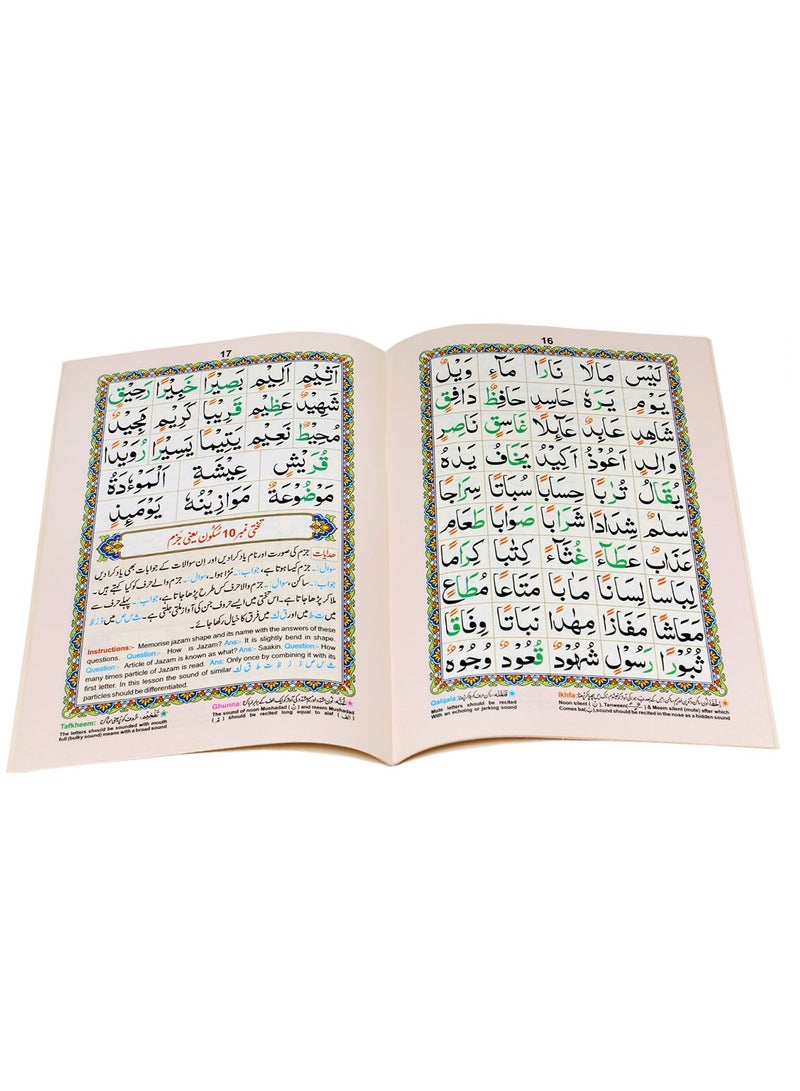 16
لَيْسَ مَالًا نَارًا مَآءٍ وَيْلٌ
يَوْمٍ يَرَهٗ حَاسِدٍ حَافِظٌ دَافِقٍ
شَاهِدٍ عَابِدٌ عَآىِٕلًا غَاسِقٍ نَاصِرٍ
وَالِدٍ اَعُوْذُ اَكِيْدُ يَخَافُ يَدٰهُ
يُقَالُ تُرٰبًا حِسَابًا سُبَاتًا سِرَاجًا
سَلٰمٌ شِدَادًا شَرَابًا صَوَابًا طَعَامٍ
عَذَابَ عَطَآءً غُثَآءً كِتٰبًا كِرَامًا
لِبَاسًا لِسَانًا مَاٰبًا مَتَاعًا مُطَاعٍ
مَعَاشًا مَفَازًا مِهٰدًا نَبَاتًا وِفَاقًا
ثُبُوْرًا رَسُوْلٍ شُهُوْدٌ قُعُوْدٌ وُجُوْهٌ
Ikhfa:
Noon silent (نْ), Tanween & Meem silent (mute) after which
Comes be(ب), sound should be recited in the nose as a hidden sound
Qalqala:
Mute letters should be recited
With an echoing or jerking sound
17
اَثِيْمٍ اَلِيْمٍ بَصِيْرًا خَبِيْرًا رَحِيْقٍ
شَهِيْدٌ عَظِيْمٍ قَرِيْبًا كَرِيْمٍ مَجِيْدٌ
مُحِيْطٌ نَعِيْمٍ يَتِيْمًا يَسِيْرًا رُوَيْدًا
قُرَيْشٍ عِيْشَةٍ الْمَوْءٗدَةُ
مَوْضُوْعَةٌ مَوَازِيْنُهٗ يَوْمَىِٕذٍ
تختی نمبر 10 سُکُون یعنی جزم
ھدایات: جزم کی صورت اور نام یاد کرادیں اور ان سوالات کے جوابات بھی یاد کرادیں
سوال:۔ جزم کیسا ہوتا ہے، جواب:۔ مُڑا ہوا۔ سوال:۔ جزم والے حرف کو کیا کہتے ہیں۔
جواب:۔ ساکن، سوال:۔ جزم والا حرف کس طرح پڑھا جاتا ہے، جواب:۔ پہلے حرف سے
ملا کر پڑھا جاتا ہے۔ اس تختی میں ایسے حروف جن کی آواز ملتی جلتی ہے۔ ث س ص میں ذ ز ظ
میں ت ط میں اور ق ك میں فرق کا خیال رکھا جائے۔
Instructions:- Memorise jazam shape and its name with the answers of these
questions. Question:- How is Jazam? Ans:- It is slightly bend in shape.
Question:- Article of Jazam is known as what? Ans:- Saakin. Question:- How
many times particle of Jazam is read. Ans:- Only once by combining it with its
first letter. In this lesson the sound of similar ث س ص ذ ز ظ ت ط ق ك
particles should be differentiated.
Ghunna:
The sound of noon Mushadad (نّ) and meem Mushadad
(مّ) should be recited long equal to alaf (الف)
Tafkheem:
The letters should be sounded with mouth
full (bulky sound) means with a broad sound